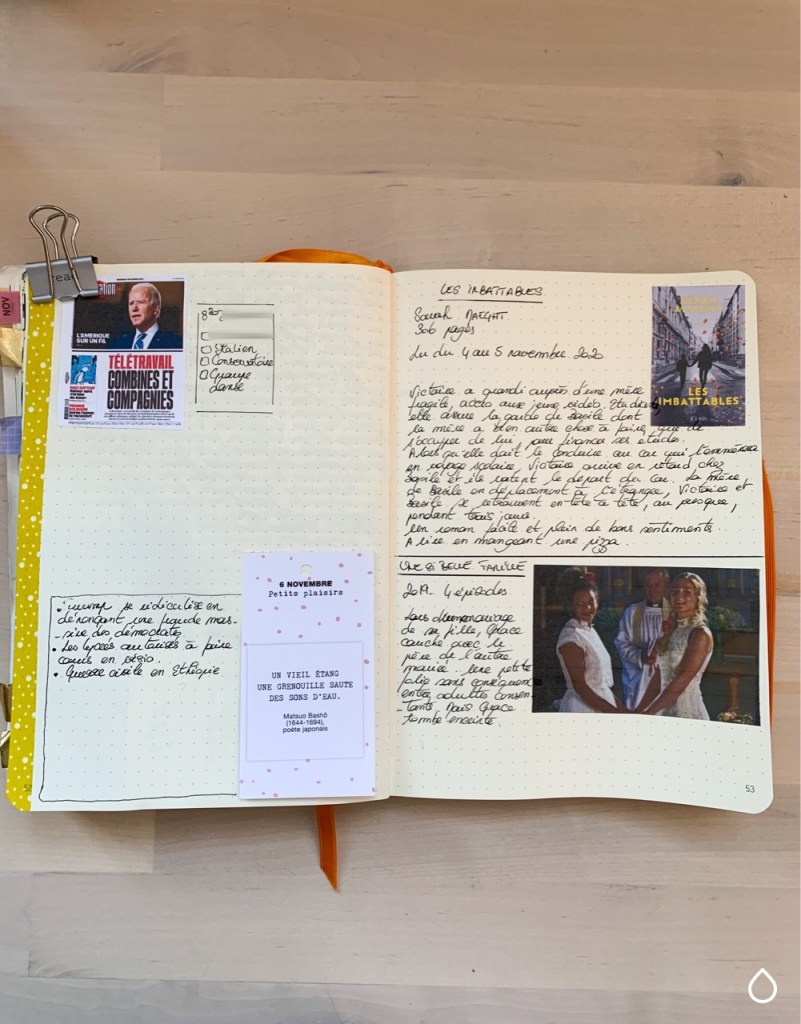 rea
NOV
ration
L'AMERIQUE
SUR UN FIL
TÉLÉTRAVAIL
COMBINES ET
COMPAGNIES
Italien
Conservatoire
Groupe
danse
se ridiculise en
dénonçant une fraude mas-
-sive des démocrates
• Les lycées autorisés à faire
cours en
• Guerre civile en Ethiopie
6 NOVEMBRE
Petits plaisirs
UN VIEIL ÉTANG
UNE GRENOUILLE SAUTE
DES SONS D'EAU.
Matsuo Bashô
(1644-1694),
poète japonais
LES IMBATTABLES
Sarah MAEGHT
306 pages
Lu du 4 au 5 novembre 2020
LES
IMBATTABLES
Victoire a grandi auprès d'une mère
fragile, accro aux jeux vidéo. Etudiante
elle assure la garde de Basile dont
la mère a bien autre chose à faire que de
s'occuper de lui, pour financer ses études.
Alors qu'elle doit le conduire au car qui l'emmènera
en voyage scolaire, Victoire arrive en retard chez
Basile et ils ratent le départ du car. La mère
de Basile en déplacement à l'étranger, Victoire et
Basile se retrouvent en tête à tête, ou presque,
pendant trois jours.
Un roman facile et plein de bons sentiments.
A lire en mangeant une pizza.
UNE SI BELLE FAMILLE
2019 - 4 épisodes
Lors du mariage
de sa fille, Grace
couche avec le
père de l'autre
mariée. Une petite
folie sans conséquences
entre adultes consen-
-tants. Mais Grace
tombe enceinte.
53